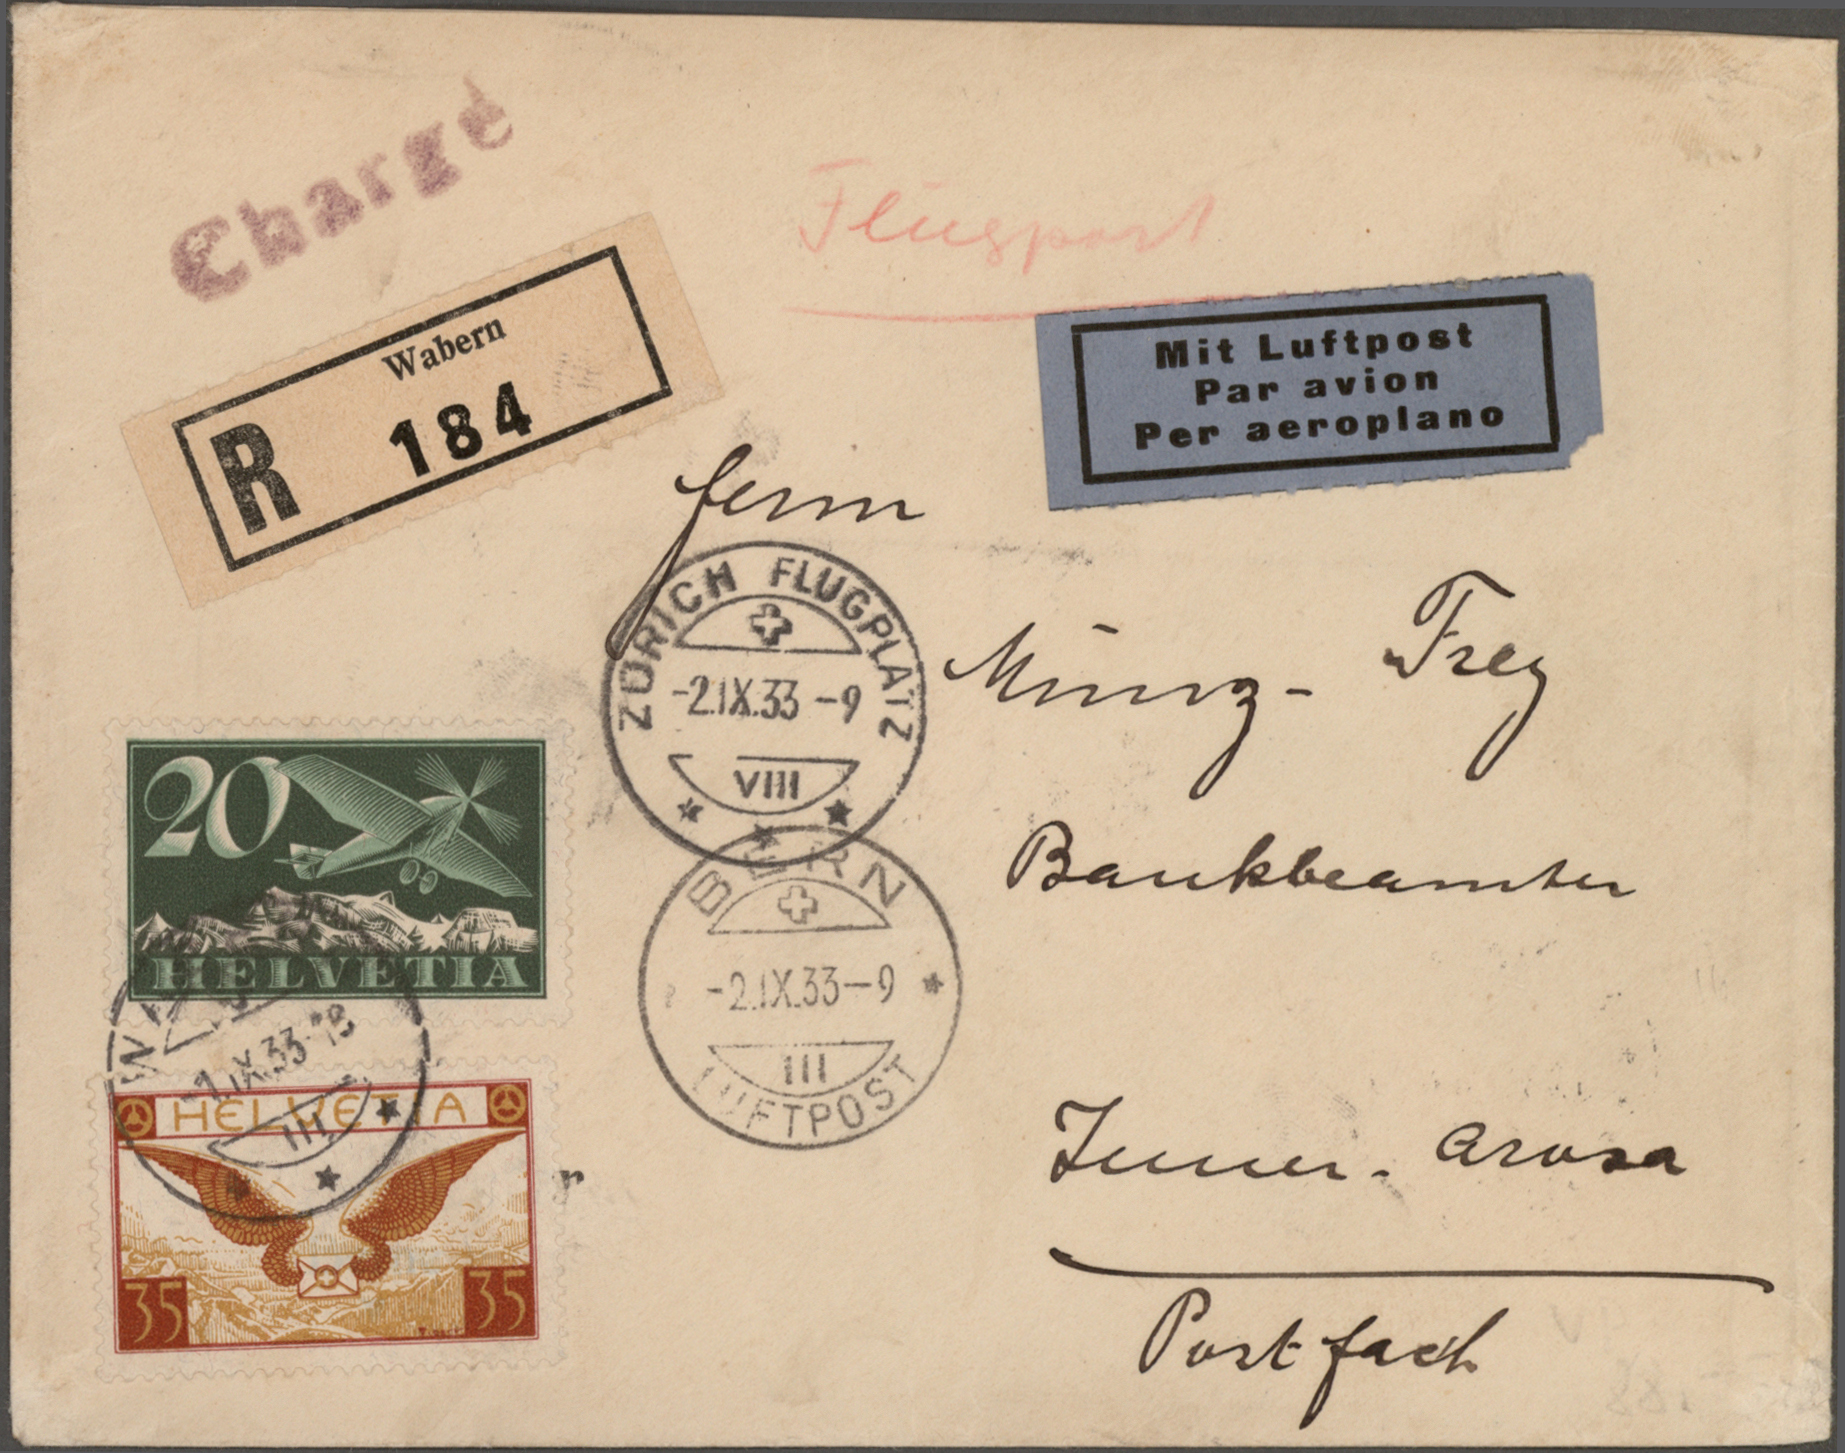 Chargé
Flugpost
Wabern
R 184
Mit Luftpost
Par avion
Per aeroplano
Herrn
ZÜRICH FLUGPLATZ
-2.IX.33 -9
VIII
Münz- Frey
20
HELVETIA
BERN
-2.IX.33-9
III
LUFTPOST
Bankbeamter
-1.IX.33-18
III
HELVETIA
35 35
Inner-Arosa
Postfach